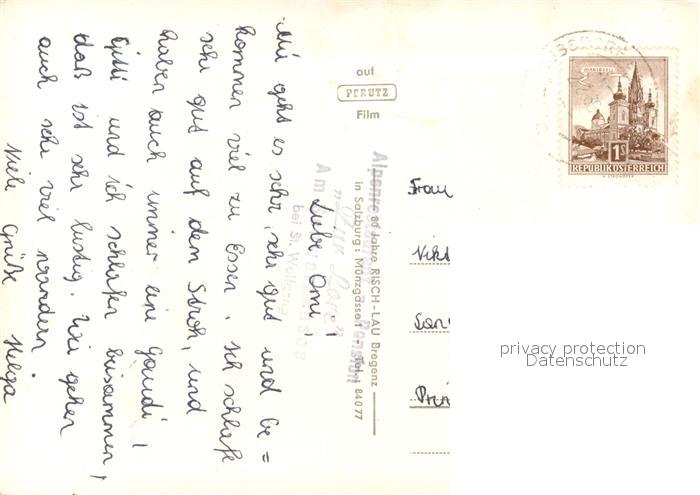 Liebe Omi!
Mir geht es sehr, sehr gut und be=
kommen viel zu Essen. Ich schlafe
sehr gut auf dem Stroh, und
haben auch immer eine Gaudi!
Gitti und ich schlafen beisammen,
daß ist sehr lustig. Wir gehen
auch sehr viel wandern.
Viele Grüße Helga
auf
PERUTZ
Film
80 Jahre RISCH-LAU Bregenz
in Salzburg: Münzgasse 1 - Tel.: 84077
Pension
bei St. Wolfgang
MARIAZELL
1S
REPUBLIK ÖSTERREICH
Frau
privacy protection
Datenschutz